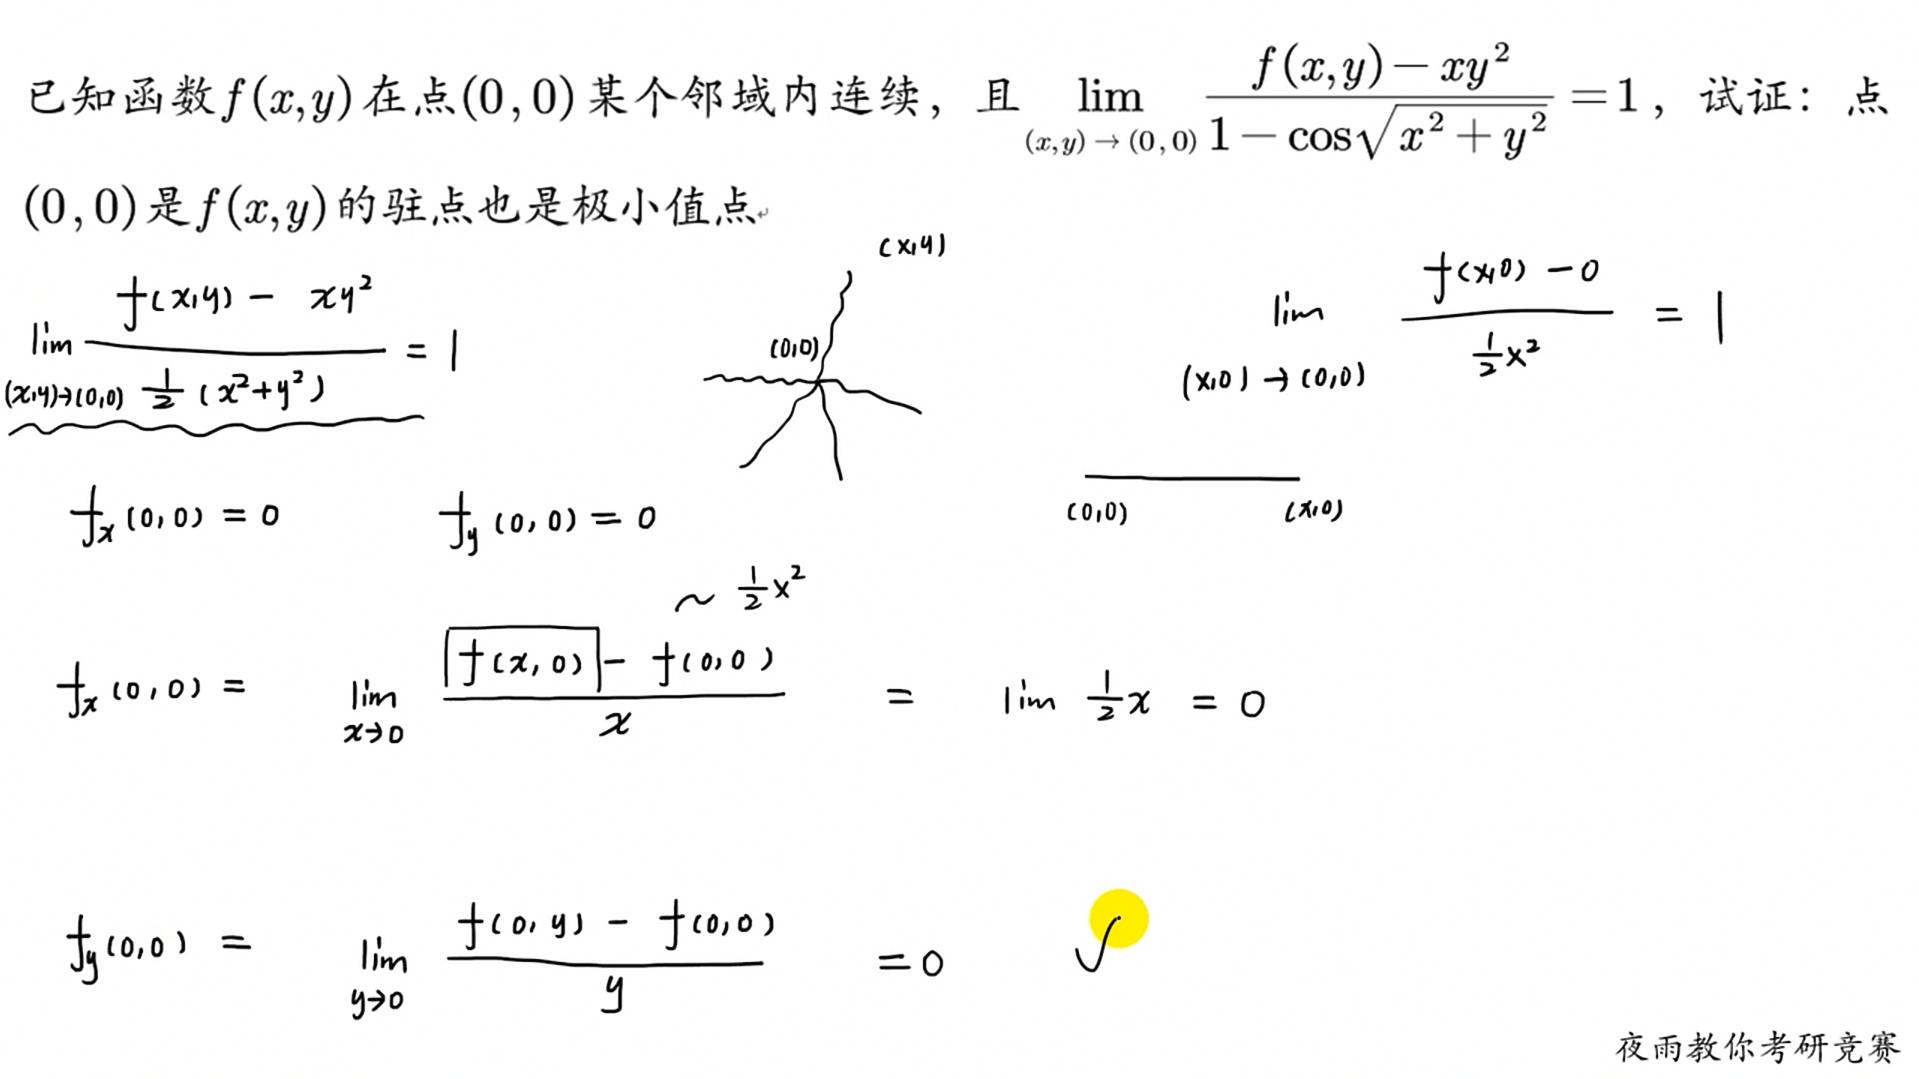 已知函数f(x,y)在点(0,0)某个邻域内连续，且 lim_{(x,y)→(0,0)} \frac{f(x,y)-xy^2}{1-cos\sqrt{x^2+y^2}} =1，试证：点
(0,0)是f(x,y)的驻点也是极小值点
lim_{(x,y)→(0,0)} \frac{f(x,y) - xy^2}{\frac{1}{2}(x^2+y^2)} = 1
(x,y)
(0,0)
lim_{(x,0)→(0,0)} \frac{f(x,0) - 0}{\frac{1}{2}x^2} = 1
(0,0) (x,0)
f_x(0,0) = 0 f_y(0,0) = 0
~ \frac{1}{2}x^2
f_x(0,0) = lim_{x→0} \frac{f(x,0) - f(0,0)}{x} = lim \frac{1}{2}x = 0
f_y(0,0) = lim_{y→0} \frac{f(0,y) - f(0,0)}{y} = 0 √
夜雨教你考研竞赛